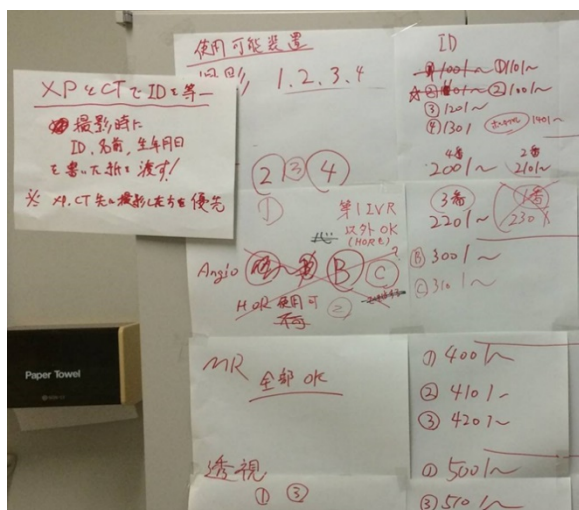 XPとCTでIDを等一
撮影時に
ID、名前、生年月日
を書いた紙を渡す!
※ XP、CT 先に撮影した方を優先
Paper Towel
使用可能装置
1.2.3.4
② ③ ④
①
第1IVR
以外OK
(HORも)
Angio
B C
HOR 使用可
不可
②
MR
全部OK
透視
① ③
ID
①1101~
②1001~
③1201~
④1301
1401~
4番
2001~
2番
2101~
3番
2201~
1番
230
Ⓑ3001~
Ⓒ3101~
①4001~
②4101~
③4201~
①5001~
③5101~